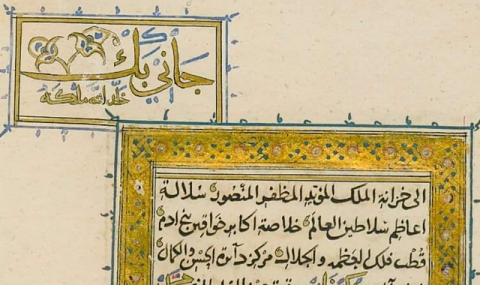 جاني بك
خلد الله ملكه
الى خزانة الملك المؤيد المظفر المنصور سلالة
اعاظم سلاطين العالم خلاصة اكابر خواقين بنى ادم
قطب فلك العظمة والجلال مركز دآئرة الحسن والكمال